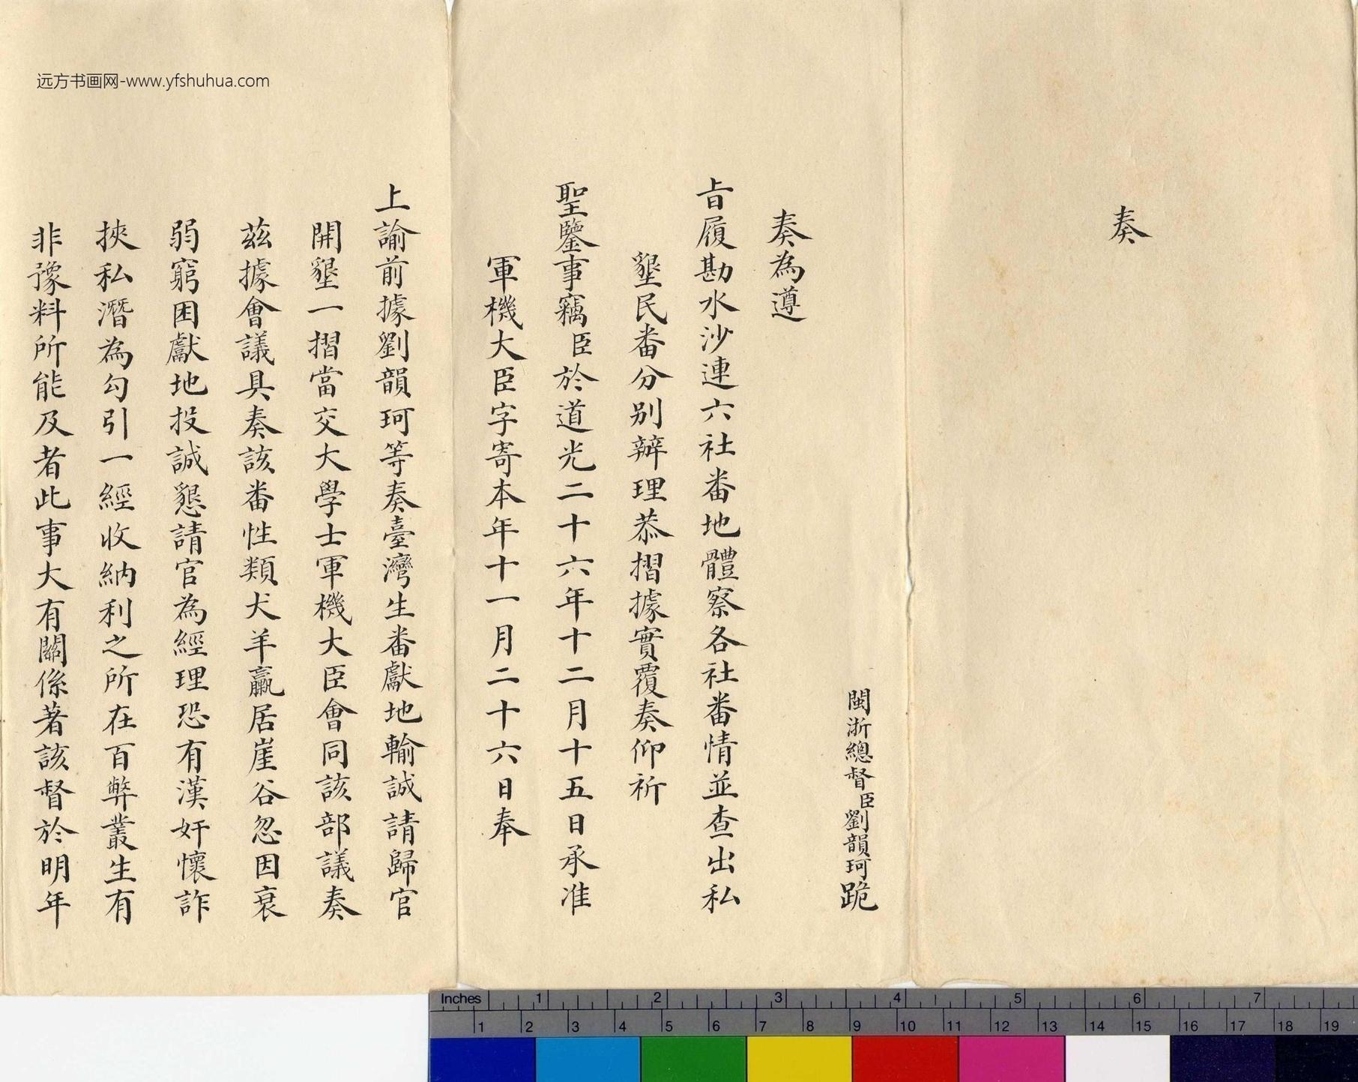 奏
閩浙總督臣劉韻珂跪
奏為遵
旨履勘水沙連六社番地體察各社番情並查出私
墾民番分别辦理恭摺據實覆奏仰祈
聖鑒事竊臣於道光二十六年十二月十五日承准
軍機大臣字寄本年十一月二十六日奉
上諭前據劉韻珂等奏臺灣生番獻地輸誠請歸官
開墾一摺當交大學士軍機大臣會同該部議奏
茲據會議具奏該番性類犬羊贏居崖谷忽因衰
弱窮困獻地投誠懇請官為經理恐有漢奸懷詐
挾私潛為勾引一經收納利之所在百弊叢生有
非豫料所能及者此事大有關係著該督於明年
远方书画网-www.yfshuhua.com
Inches 1 2 3 4 5 6 7
1 2 3 4 5 6 7 8 9 10 11 12 13 14 15 16 17 18 19